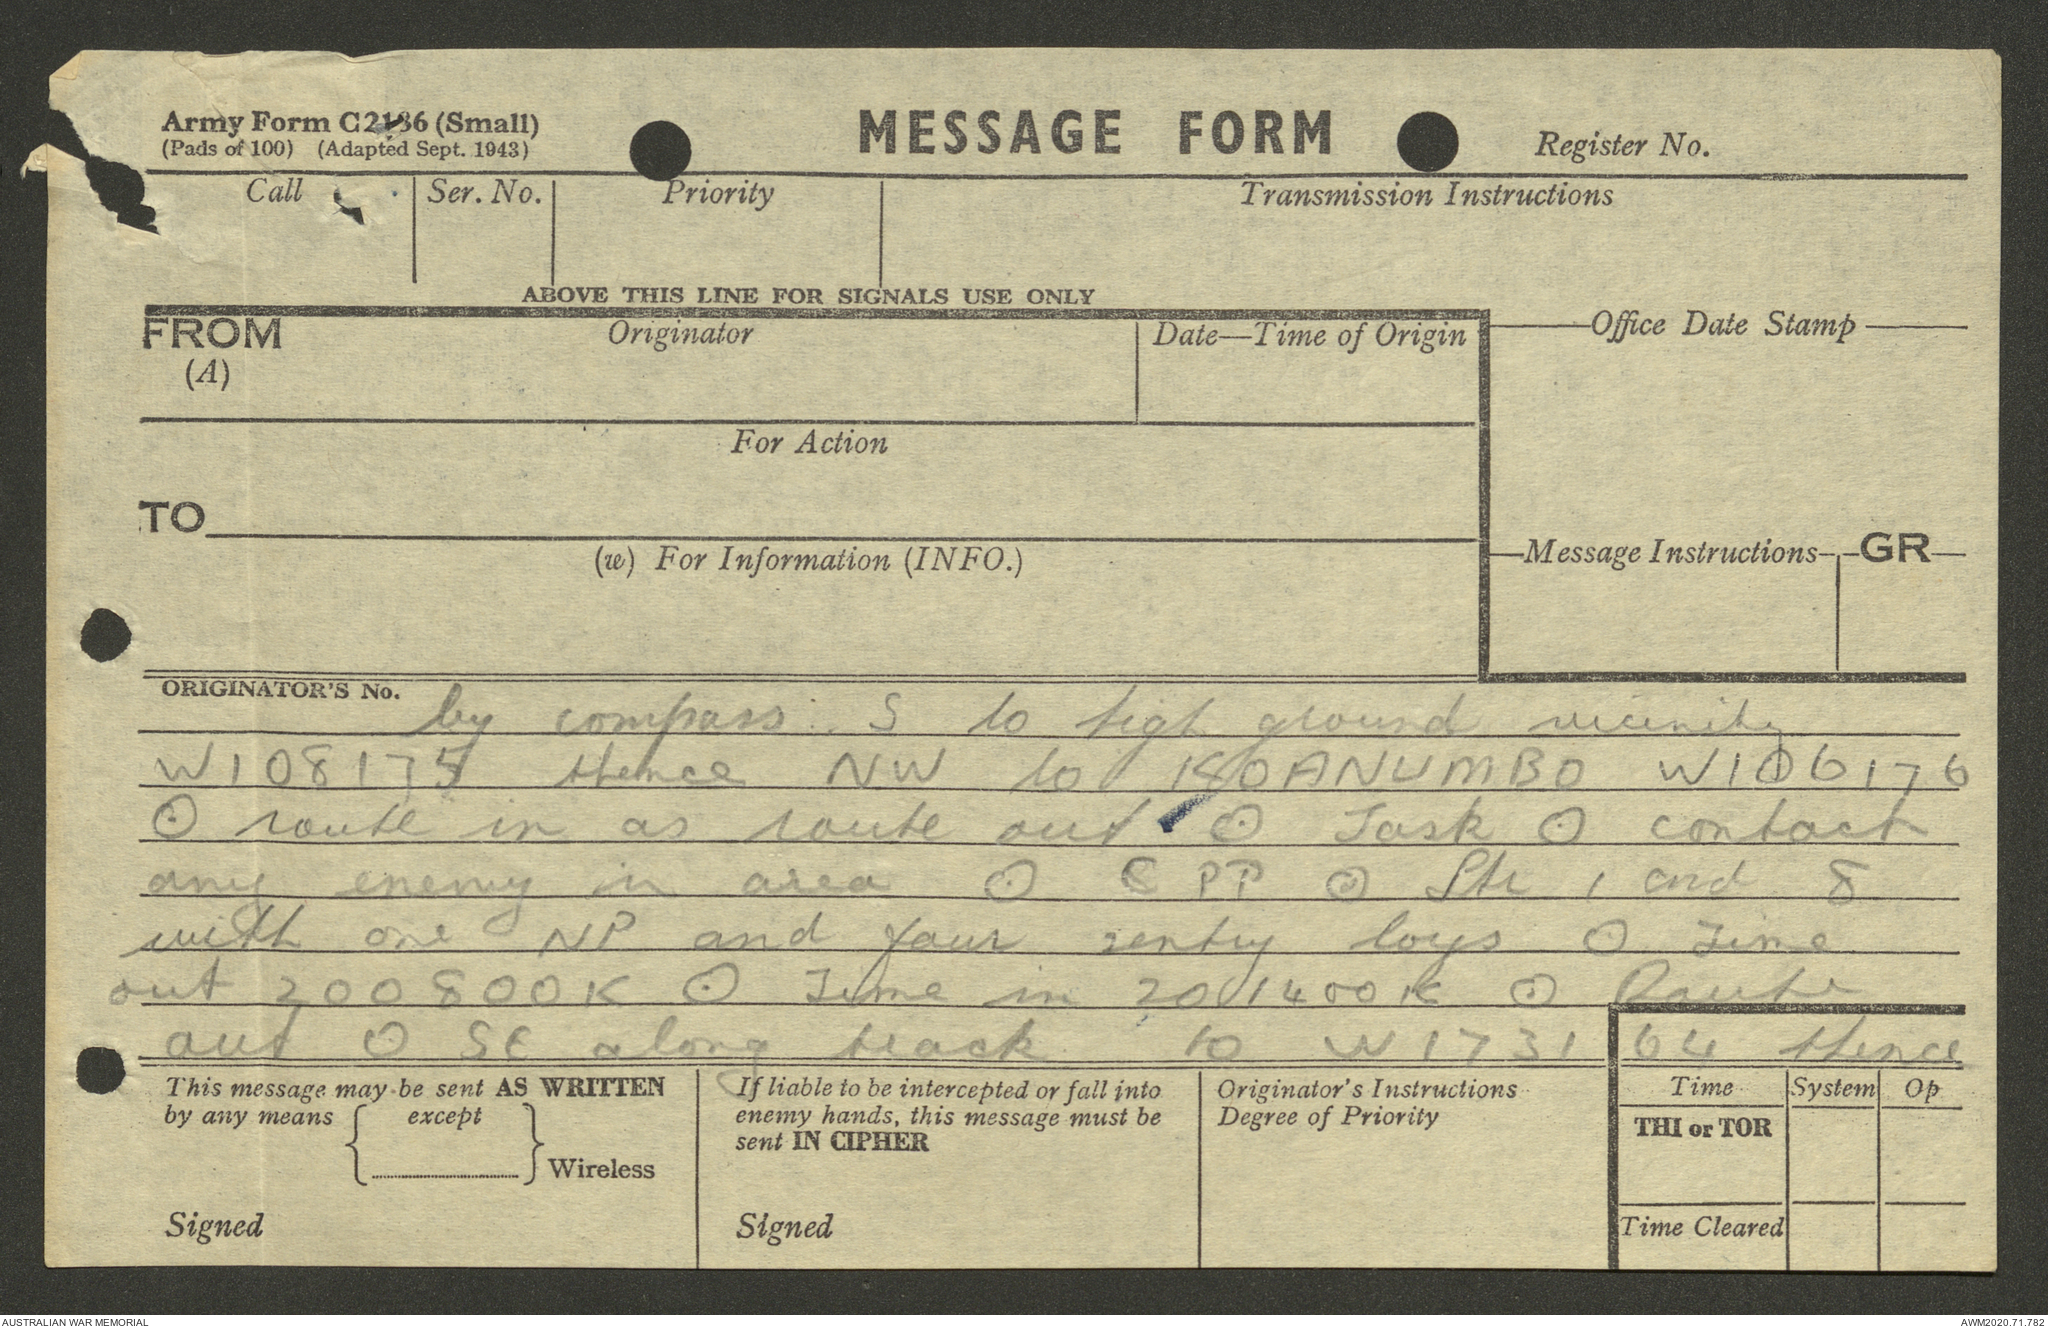 Army Form C2136 (Small)
(Pads of 100) (Adapted Sept. 1943)
MESSAGE FORM
Register No.
Call
Ser. No.
Priority
Transmission Instructions
ABOVE THIS LINE FOR SIGNALS USE ONLY
FROM
(A)
Originator
Date—Time of Origin
Office Date Stamp
For Action
TO
(w) For Information (INFO.)
Message Instructions
GR
ORIGINATOR'S No.
by compass S to high ground vicinity
W108175 thence NW to KOANUMBO W106176
⊙ route in as route out ⊙ Task ⊙ contact
any enemy in area ⊙ C PP ⊙ Str 1 and 8
with one NP and four sentry boys ⊙ Time
out 200800K ⊙ Time in 201400K ⊙ Route
out ⊙ SE along track to W173164 thence
This message may be sent AS WRITTEN
by any means { except } Wireless
Signed
If liable to be intercepted or fall into
enemy hands, this message must be
sent IN CIPHER
Signed
Originator's Instructions
Degree of Priority
Time
System
Op
THI or TOR
Time Cleared
AUSTRALIAN WAR MEMORIAL
AWM2020.71.782